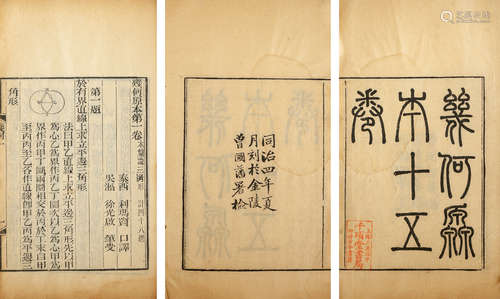 幾何原本十五
卷
同治四年夏
月刻於金陵
曾國藩署檢
幾何原本第一卷 本篇論三角形 計四十八題
泰西 利瑪竇 口譯
吳淞 徐光啟 筆受
第一題
於有界直線上求立平邊三角形
法曰甲乙直線上求立平邊三角形先以甲
為心乙為界作丙乙丁圜次以乙為心甲為
界作丙甲丁圜兩圜相交於丙於丁末自甲
至丙丙至乙各作直線即甲乙丙為平邊三
角形